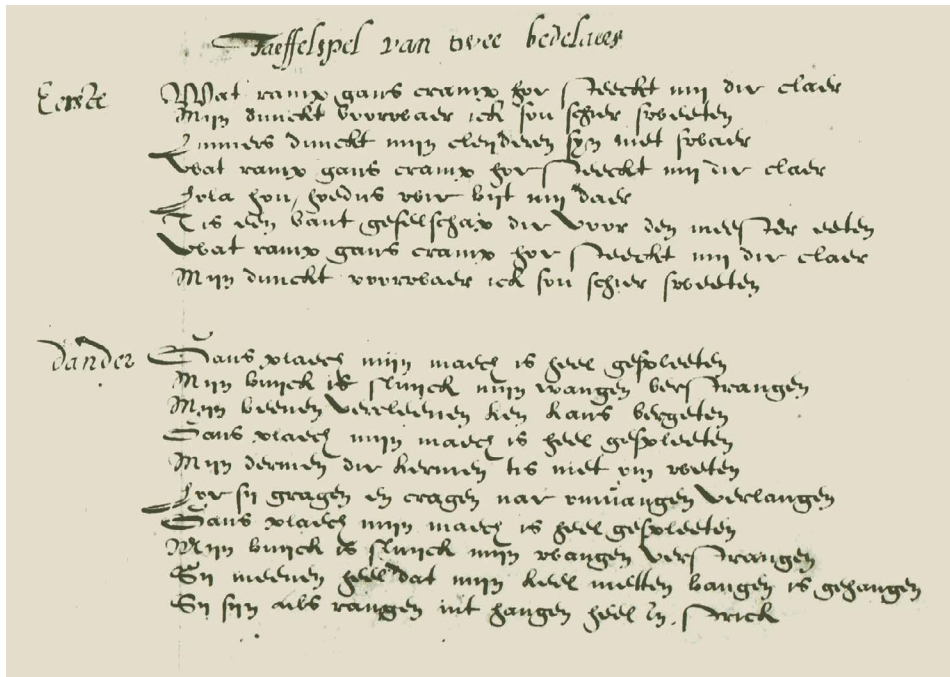 Taeffelspel van twee bedelaers
Eerste Wat ramp gans cramp hoe steeckt mij die claer
Mijn dunckt voorwaer ick sou schier sweeten
Immers dunckt mijn cleijderen sijn niet swaer
Wat ramp gans cramp hoe steeckt mij die claer
hola hou, hoedus wie bijt mij daer
Tis een vant geselschap die voor den meester eeten
Wat ramp gans cramp hoe steeckt mij die claer
Mijn dunckt voorwaer ick sou schier sweeten
Dander Gans plaech mijn maech is heel gespleeten
Mijn buijck is sluijck mijn wangen verstrangen
Mijn beenen vercleenen ken kans vergeten
Gans plaech mijn maech is heel gespleeten
Mijn dermen die kermen tis niet om weten
hoe sij gragen en cragen nae omvangen verlangen
Gans plaech mijn maech is heel gespleeten
Mijn buijck is sluijck mijn wangen verstrangen
Sij meenen heel dat mijn keel metten bangen is gehangen
Sij sijn als rangen int hangen heel in strick